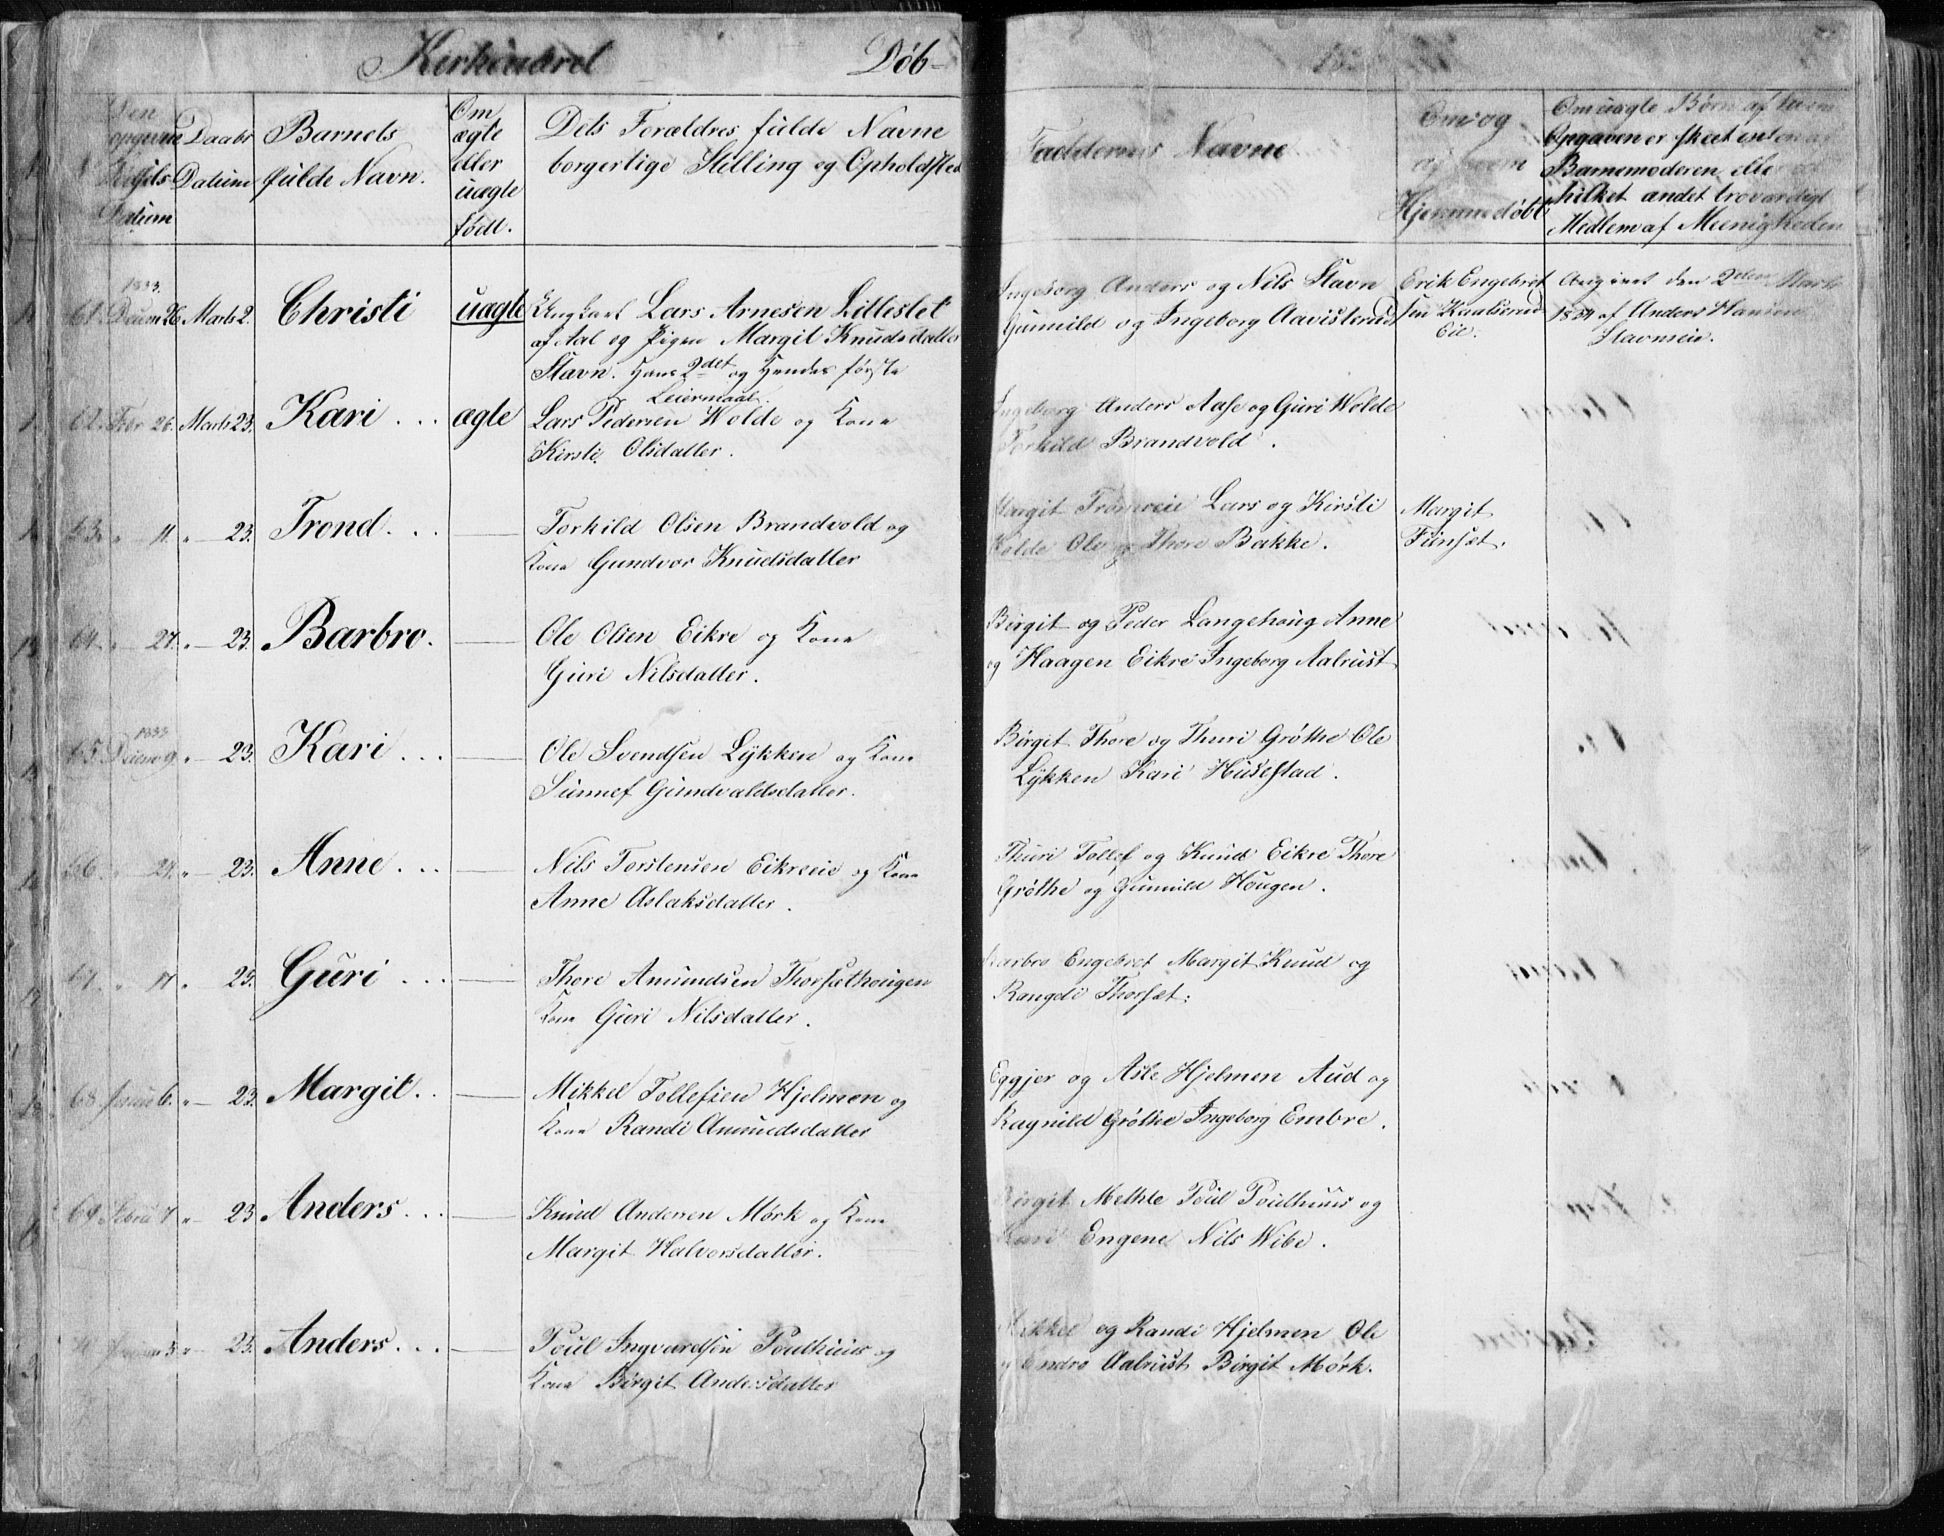 Døb-
Den opgivne Fødsels Datum
Daabs Datum
Barnets fulde Navn.
Om ægte eller uægte født.
Dets Forældres fulde Navne borgerlige Stilling og Opholdsted
Faddernes Navne
Om og af hvem Hjemmedøbt
Om uægte Børn af hvem Opgaven er skeet enten af Barnemoderen eller hvilket andet troværdigt Medlem af Meenigheden
1833.
61. Decem 26 Marts 2. Christi uægte Ungkarl Lars Arnesen Lillestet
af Aal og Pigen Margit Knudsdatter
Stavn. Hans 2det og Hendes første
Leiermaal.
Ingeborg Anders og Nils Stavn
Gunnild og Ingeborg Aavisterud
Erik Engebret
sen Kaalserud
Eie.
Angivet den 2den Marts
1834 af Anders Hansen
Stavnseie.
62. Febr 26. Marts 23. Kari . . . ægte Lars Pedersen Wolde og Kone
Kirsti Olsdatter.
Ingeborg Anders Aase og Guri Wolde
Torkild Brandvold.
63. " 11. " — 23. Trond. . . — Torkild Olsen Brandvold og
Kone Gundvor Knudsdatter
Margit Trømseie Lars og Kirsti
Wolde Ole og Thore Bakke.
Margit
Finsæt.
64. " 27. " — 23. Barbro. — Ole Olsen Eikre og Kone
Guri Nilsdatter.
Birgit og Peder Langehoug Anne
og Haagen Eikre Ingeborg Aalrust
1833
65. Decem 9. " — 23. Kari . . . — Ole Svendsen Lykken og Kone
Sunnef Gundvaldsdatter.
Birgit Thore og Thuri Grøthe Ole
Lykken Kari Husestad.
66. " 24. " — 23. Anne . . . — Nils Torstensen Eikreeie og Kone
Anne Aslaksdatter.
Thuri Tollef og Knud Eikre Thore
Grøthe og Gunnild Hougen.
67. " 17 " 23. Guri . . . — Thore Amundsen Thorsæthougen
Kone Guri Nilsdatter.
Barbro Engebret Margit Knud og
Rangdi Thorsæt.
68 Janu 6. " — 23. Margit. . — Mikkel Tollefsen Hjelmen og
Kone Randi Amundsdatter
Eggjer og Asle Hjelmen Aud og
Ragnild Grøthe Ingeborg Embre.
69 Febru 7 " — 23 Anders. . . — Knud Andersen Mørk og Kone
Margit Halvorsdatter.
Birgit Methle Poul Poulhuus og
Kari Engene Nils Wibe.
5 " — 23. Anders. . . — Poul Ingvardsen Poulhuus og
Kone Birgit Andersdatter
Mikkel og Randi Hjelmen Ole
og Endre Aalrust Birgit Mørk.